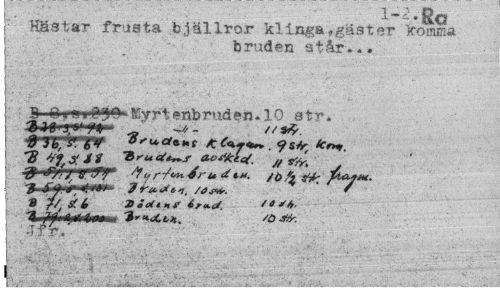 1-2. Ra
Hästar frusta bjällror klinga, gäster komma
bruden står...
B 8, s. 230 Myrtenbruden. 10 str.
B 28:3, s. 92 -"- 11 str.
B 36, s. 64 Brudens klagan. 9 str, kom.
B 49, s. 88 Brudens avsked. 11 str.
Myrtenbruden. 10 1/2 str. fragm.
Bruden, 10 str.
B 71, s. 6 Dödens brud. 10 str.
Bruden. 10 str.
Jfr.